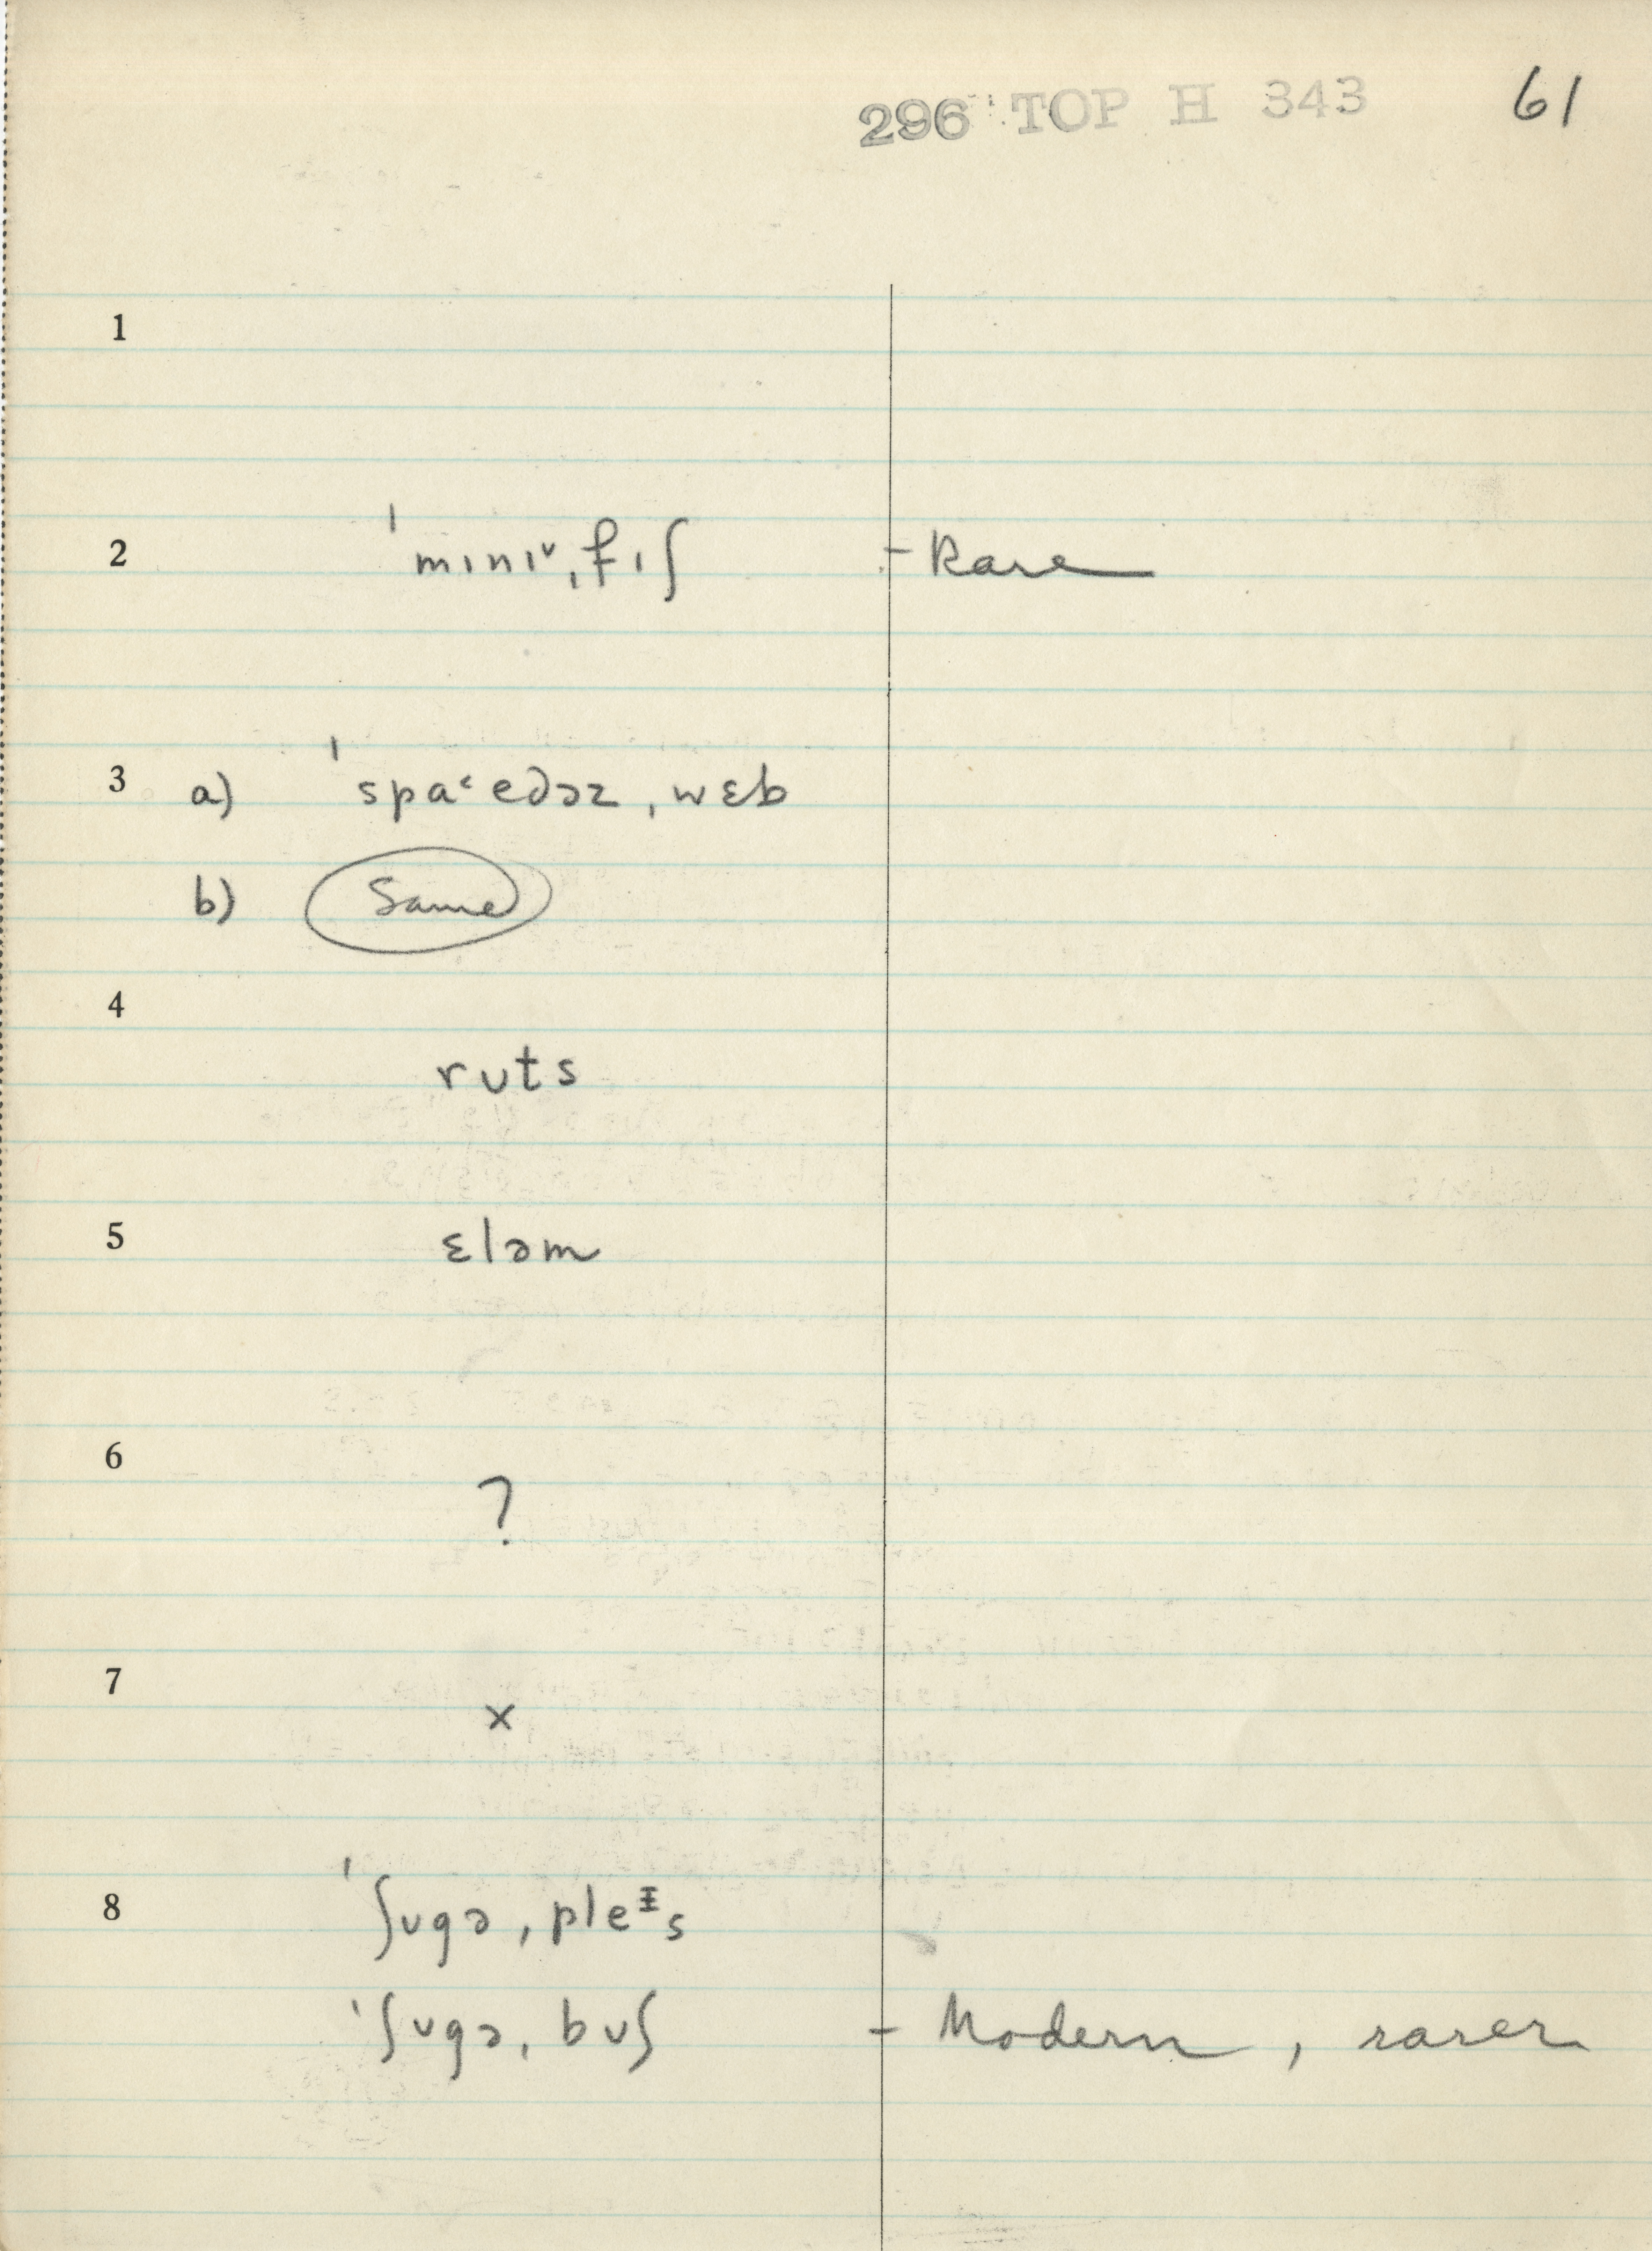 296 TOP H 343 61
1
2 ˈmɪnɪ˅ˌfɪʃ - Rare
3 a) ˈspa˂edəzˌwɛb
b) Same
4
ruts
5 ɛləm
6
?
7
×
8 ˈʃugəˌpleᵻs
ˈʃugəˌbuʃ - Modern, rarer